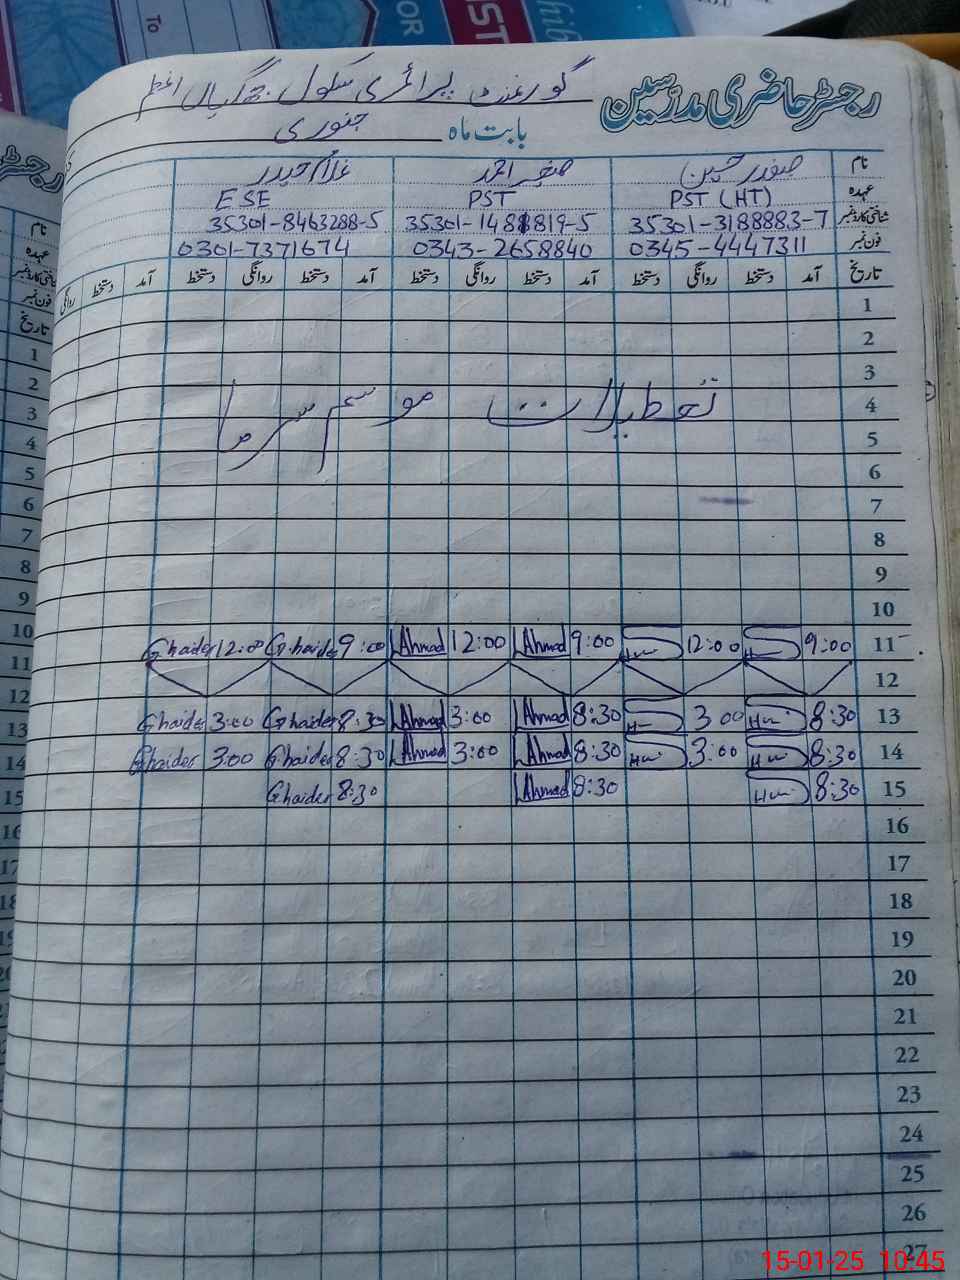 رجسٹر حاضری مدرسین گورنمنٹ پرائمری سکول
بابت ماہ جنوری
نام صفدر حسین صغیر احمد غلام حیدر
عہدہ PST (HT) PST ESE
شناختی کارڈ نمبر 35301-3188883-7 35301-1488819-5 35301-8463288-5
فون نمبر 0345-4447311 0343-2658840 0301-7371674
تاریخ آمد دستخط روانگی دستخط آمد دستخط روانگی دستخط آمد دستخط روانگی دستخط آمد دستخط روانگی
1
2
3
4 تعطیلات موسم سرما
5
6
7
8
9
10
11 9:00 12:00 9:00 Ahmad 12:00 Ahmad 9:00 Ghaider 12:00 Ghaider
12
13 8:30 3:00 8:30 Ahmad 3:00 Ahmad 8:30 Ghaider 3:00 Ghaider
14 8:30 3:00 8:30 Ahmad 3:00 Ahmad 8:30 Ghaider 3:00 Ghaider
15 8:30 8:30 Ahmad 8:30 Ghaider
16
17
18
19
20
21
22
23
24
25
26
27
15-01-25 10:45